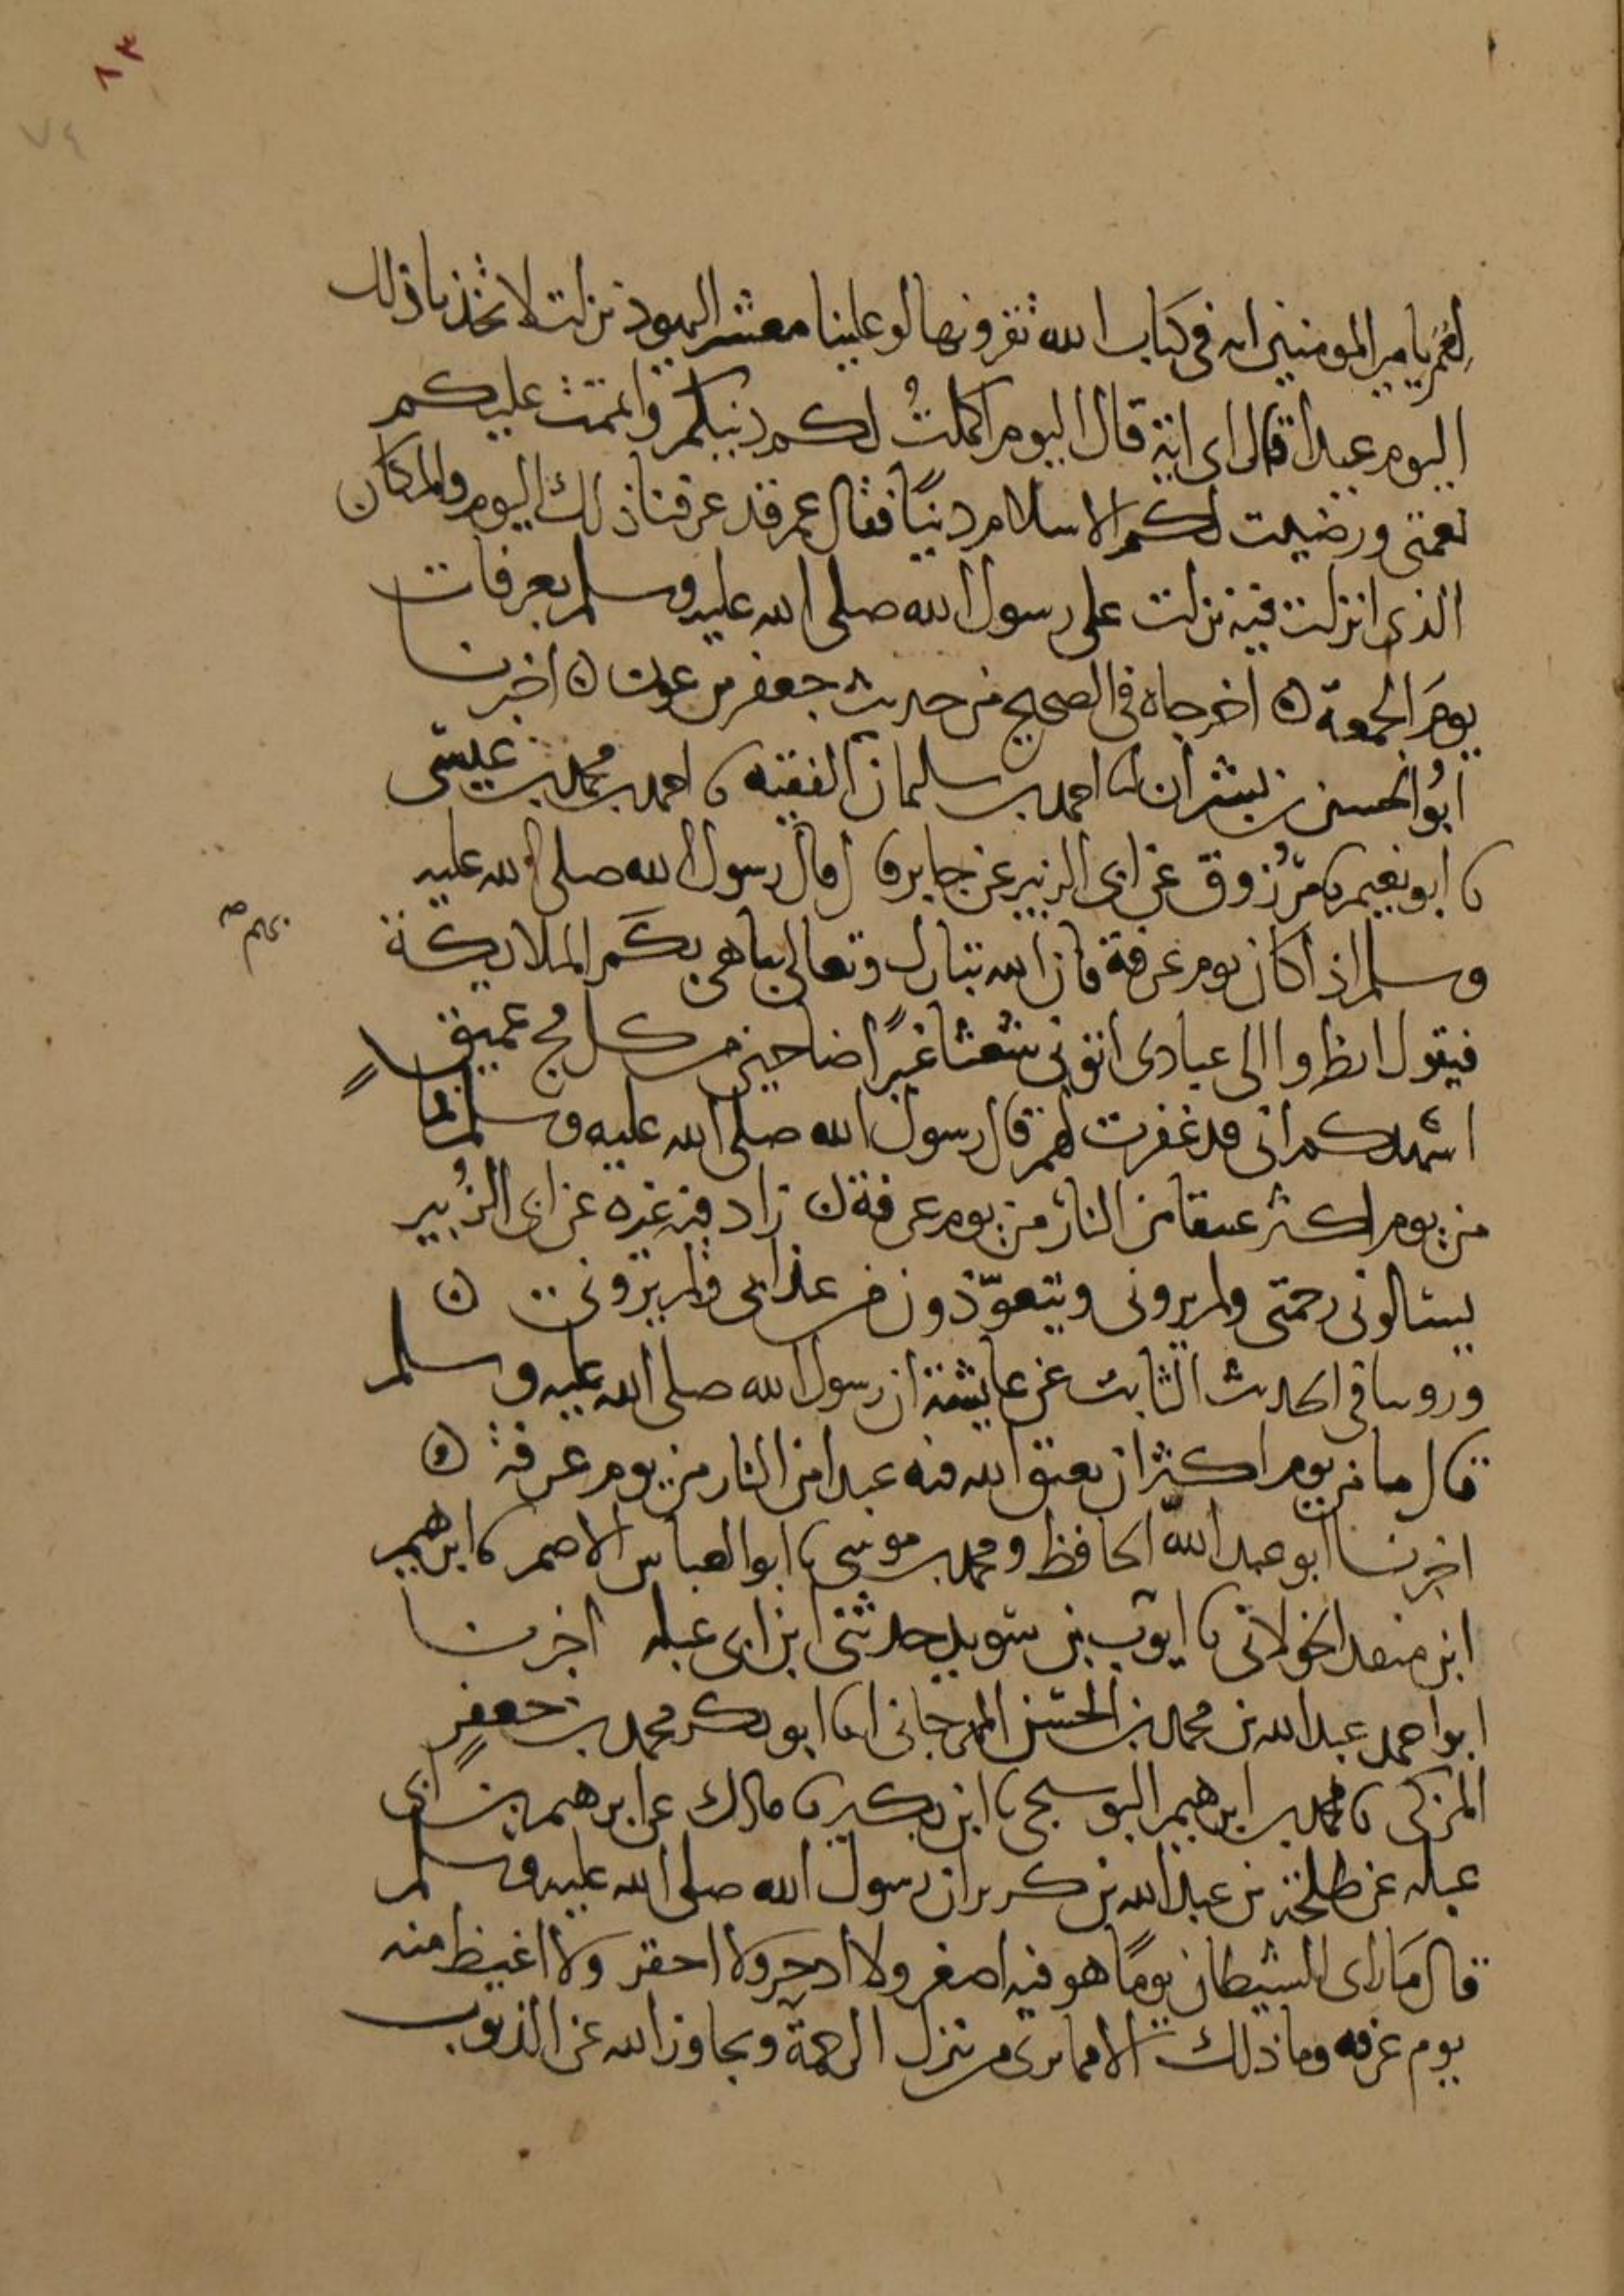 ٨٣
٧٤
لعمر يامير المومنين ايه في كتاب الله تقرونها لو علينا معشر اليهود نزلت لاتخذنا ذلك
اليوم عيدا قال اي اية قال اليوم اكملت لكم دينكم واتممت عليكم
نعمتي ورضيت لكم الاسلام دينًا فقال عمر قد عرفنا ذلك اليوم والمكان
الذي انزلت فيه نزلت على رسول الله صلى الله عليه وسلم بعرفات
يومَ الجمعة ۞ اخرجاه في الصحيح من حديث جعفر بن عون ۞ اخبرنا
ابُو الحسين بن بشران انا احمد بن سلمان الفقيه نا احمد بن محمد بن عيسى
نا ابو نعيم نا مرزوق عن ابي الزبير عن جابر قال قال رسول الله صلى الله عليه
وسلم اذا كان يوم عرفة فان الله تبارك وتعالى يباهي بكم الملايكة
بهم صح
فيقول انظروا الى عبادي اتوني شعثا غبرًا ضاحين من كل فج عميق
اشهدكم اني قد غفرت لهم قال رسول الله صلى الله عليه وسلم فما
من يوم اكثر عتقا من النار من يوم عرفة ۞ زاد فيه غيره عن ابي الزُبير
يسالوني رحمتي ولم يروني ويتعوّذون من عذابي ولم يروني ۞
وروينا في الحديث الثابت عن عايشة ان رسول الله صلى الله عليه وسلم
قال ما من يوم اكثر ان يعتق الله فيه عبدا من النار من يوم عرفة ۞
اخبرنا ابو عبد الله الحافظ ومحمد بن موسى نا ابو العباس الاصم نا ابرهيم
ابن منقد الخولاني نا ايوب بن سويد حدثني ابن ابي عبله اخبرنا
ابو احمد عبد الله بن محمد بن الحسن المهرجاني انا ابو بكر محمد بن جعفرٍ
المزكي نا محمد بن ابرهيم البوسنجي نا ابن بكير نا مالك عن ابرهيم بن ابي
عبله عن طلحة بن عبيد الله بن كريز ان رسول الله صلى الله عليه وسلم
قال مَا راى الشيطان يومًا هو فيه اصغر ولا ادحر ولا احقر ولا اغيظ منه
يوم عرفه وما ذلك الا مما يرى من تنزل الرحمة وتجاوز الله عن الذنوب